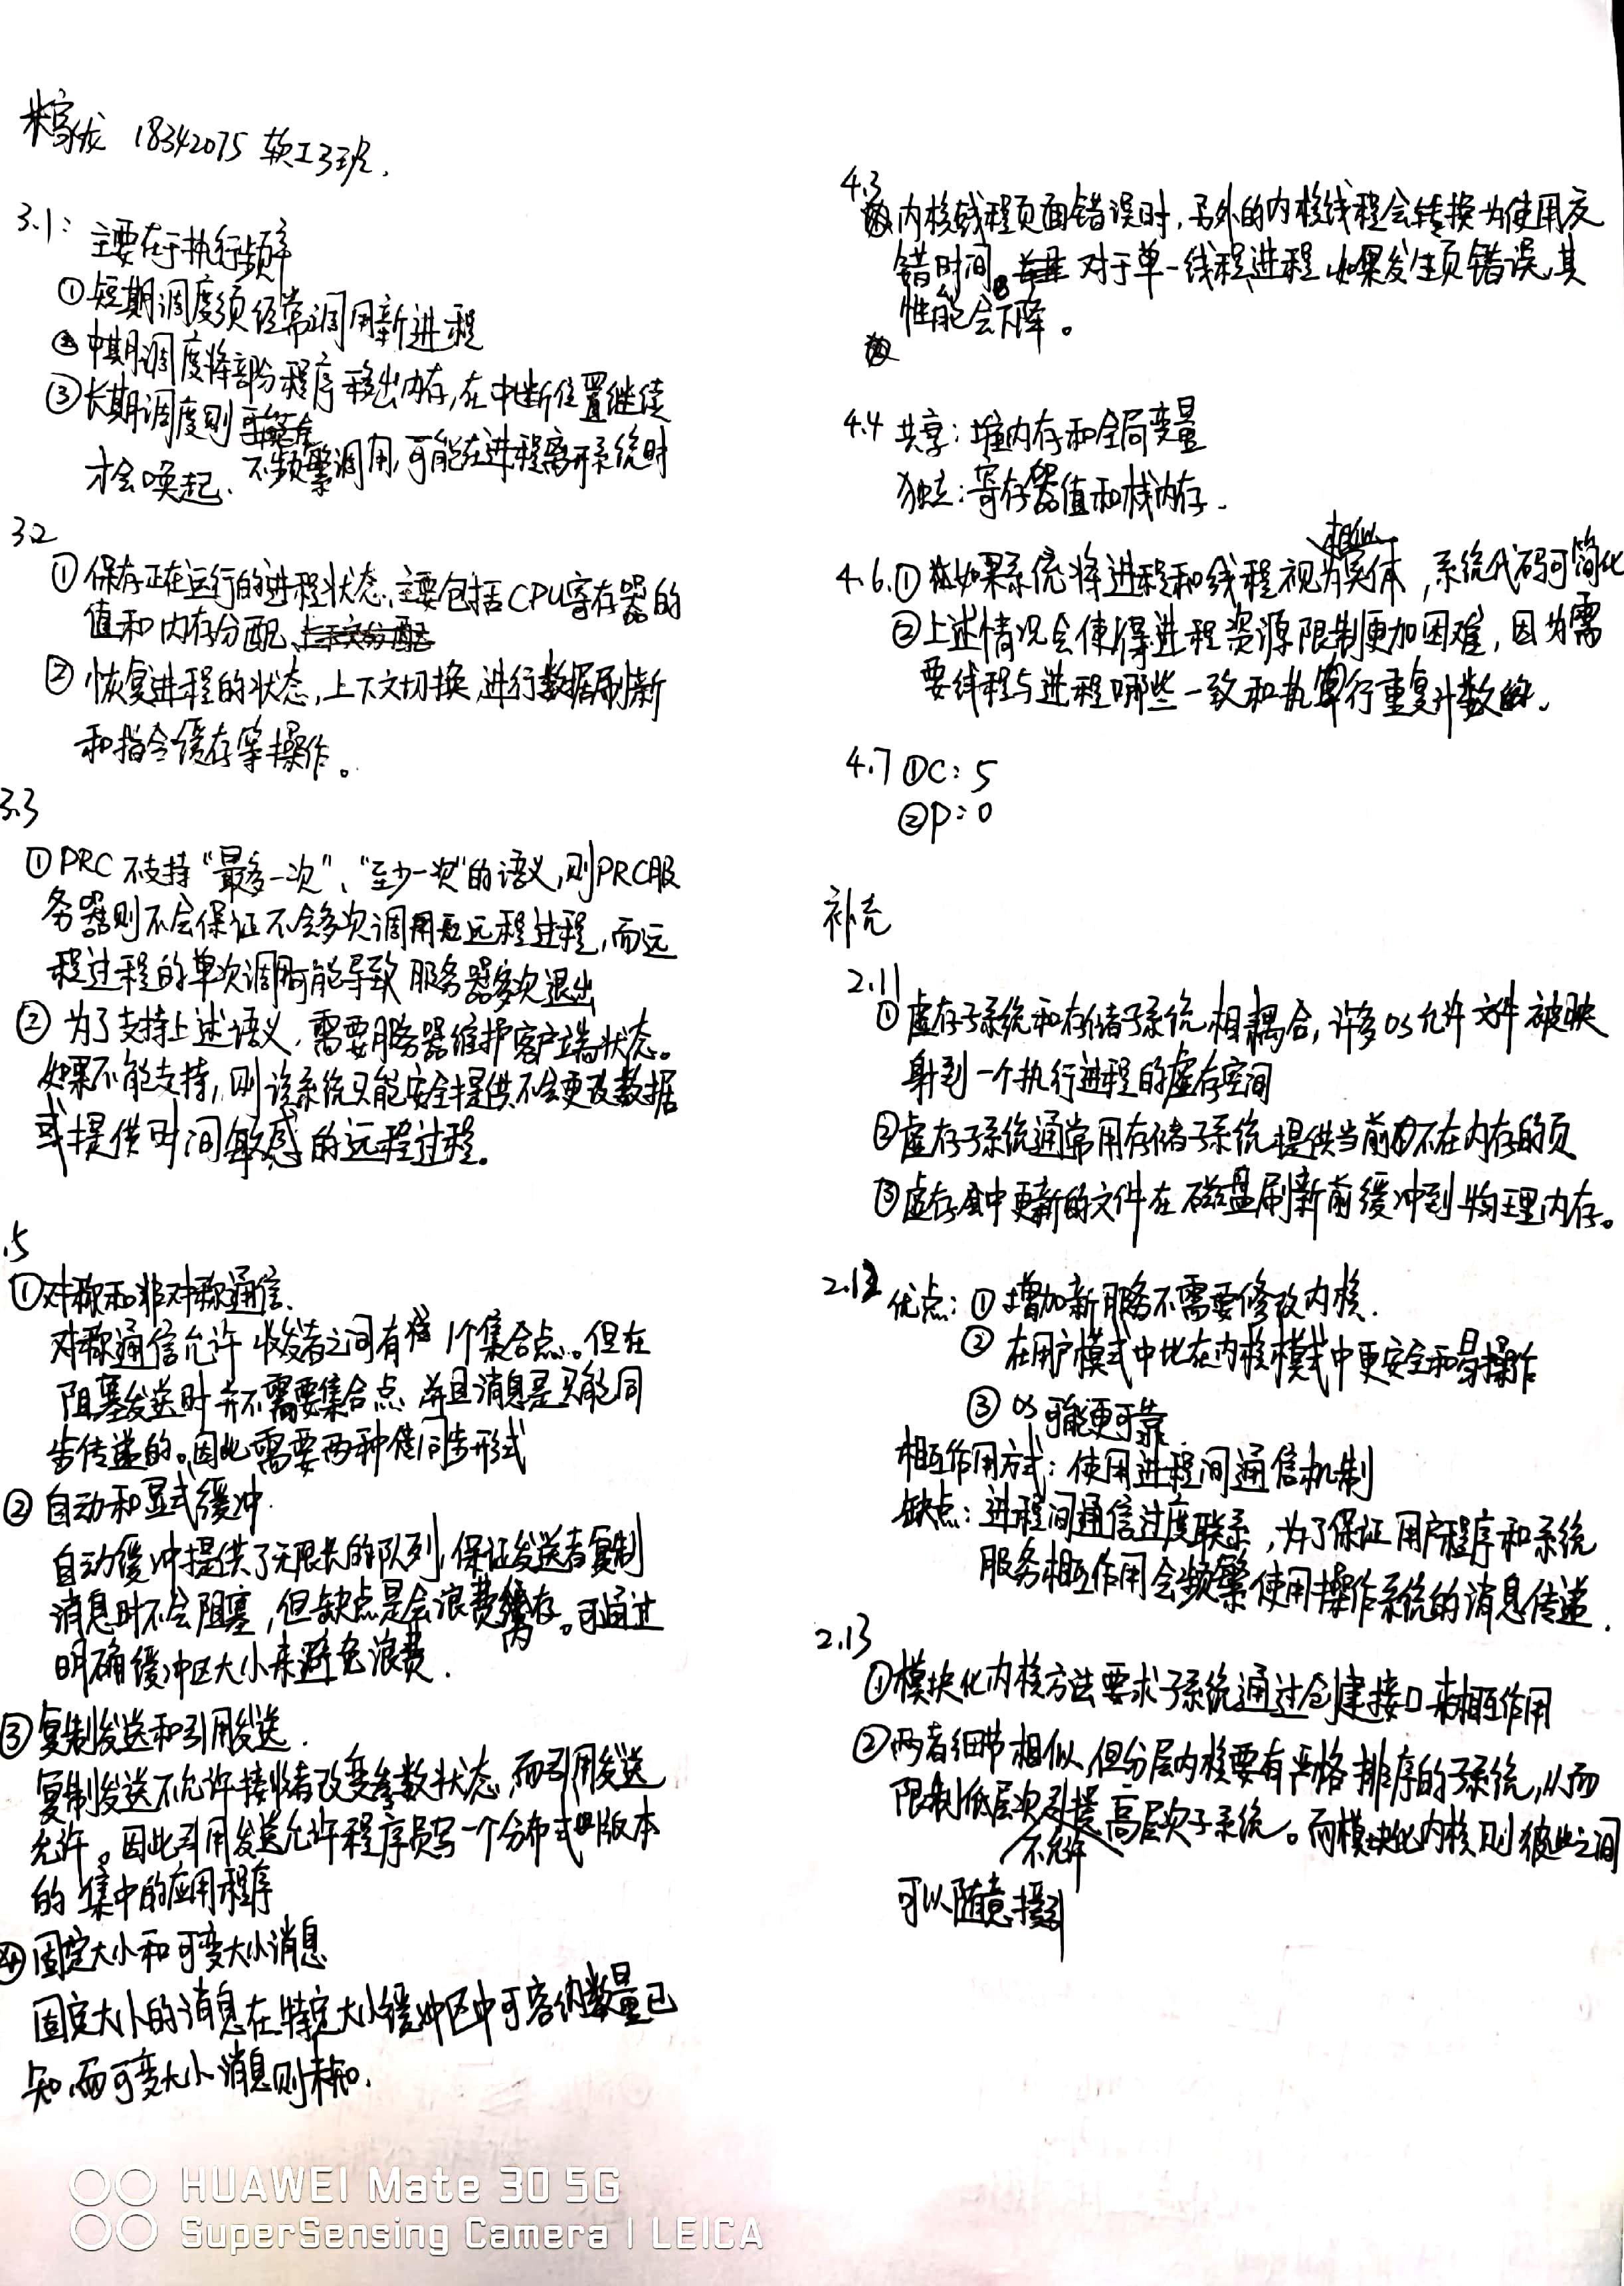 18342075 软工3班.
3.1: 主要在于执行频率
① 短期调度须经常调用新进程
② 中期调度将部分程序移出内存,在中断位置继续
③ 长期调度则
不频繁调用,可能在进程离开系统时
才会唤起.
3.2
① 保存正在运行的进程状态.主要包括CPU寄存器的
值和内存分配.
② 恢复进程的状态,上下文切换,进行数据刷新
和指令缓存等操作。
3.3
① PRC 不支持“最多一次”、“至少一次”的语义,则PRC服
务器则不会保证不会多次调用远程过程,而远
程过程的单次调用可能导致服务器多次退出
② 为了支持上述语义,需要服务器维护客户端状态。
如果不能支持,则该系统只能安全提供不会更改数据
或提供时间敏感的远程过程.
.5
① 对称和非对称通信.
对称通信允许收发者之间有1个集合点。但在
阻塞发送时并不需要集合点,并且消息是只能同
步传递的。因此需要两种同步形式
② 自动和显式缓冲.
自动缓冲提供了无限长的队列,保证发送者复制
消息时不会阻塞,但缺点是会浪费内存。可通过
明确缓冲区大小来避免浪费.
③ 复制发送和引用发送.
复制发送不允许接收者改变参数状态,而引用发送
允许。因此引用发送允许程序员写一个分布式版本
的集中的应用程序
④ 固定大小和可变大小消息
固定大小的消息在特定大小缓冲区中可容纳数量已
知,而可变大小消息则未知.
4.3
内核线程页面错误时,另外的内核线程会转换为使用交
错时间。对于单一线程进程,如果发生页错误,其
性能会下降。
4.4 共享:堆内存和全局变量
独立:寄存器值和栈内存.
4.6.① 如果系统将进程和线程视为相似实体,系统代码可简化
② 上述情况会使得进程资源限制更加困难,因为需
要线程与进程哪些一致和执行重复计数的.
4.7 ①C: 5
②P: 0
补充
2.11
① 虚存子系统和存储子系统相耦合,许多OS允许文件被映
射到一个执行进程的虚存空间
② 虚存子系统通常用存储子系统提供当前不在内存的页
③ 虚存中更新的文件在磁盘刷新前缓冲到物理内存。
2.12 优点: ① 增加新服务不需要修改内核.
② 在用户模式中比在内核模式中更安全和易操作
③ OS可能更可靠
相互作用方式:使用进程间通信机制
缺点:进程间通信过度联系,为了保证用户程序和系统
服务相互作用会频繁使用操作系统的消息传递.
2.13
① 模块化内核方法要求子系统通过创建接口来相互作用
② 两者细节相似,但分层内核要有严格排序的子系统,从而
限制低层次不允许援引高层次子系统。而模块化内核则彼此之间
可以随意援引
HUAWEI Mate 30 5G
SuperSensing Camera | LEICA